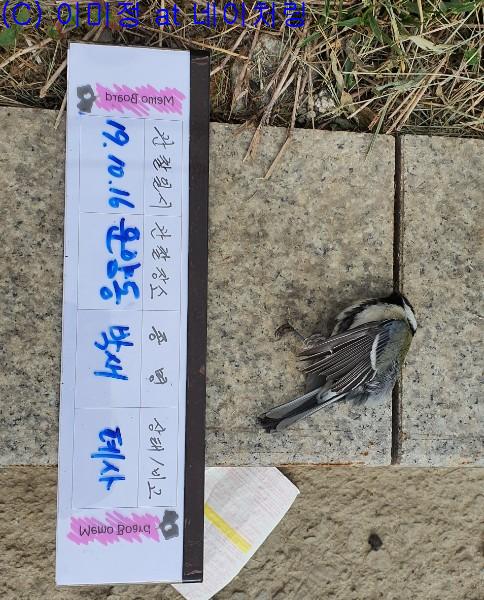 (C) 이미정 at 네이처링
Memo Board
관찰일시 19.10.16
관찰장소 운양동
종명 박새
상태/비고 폐사
Memo Board